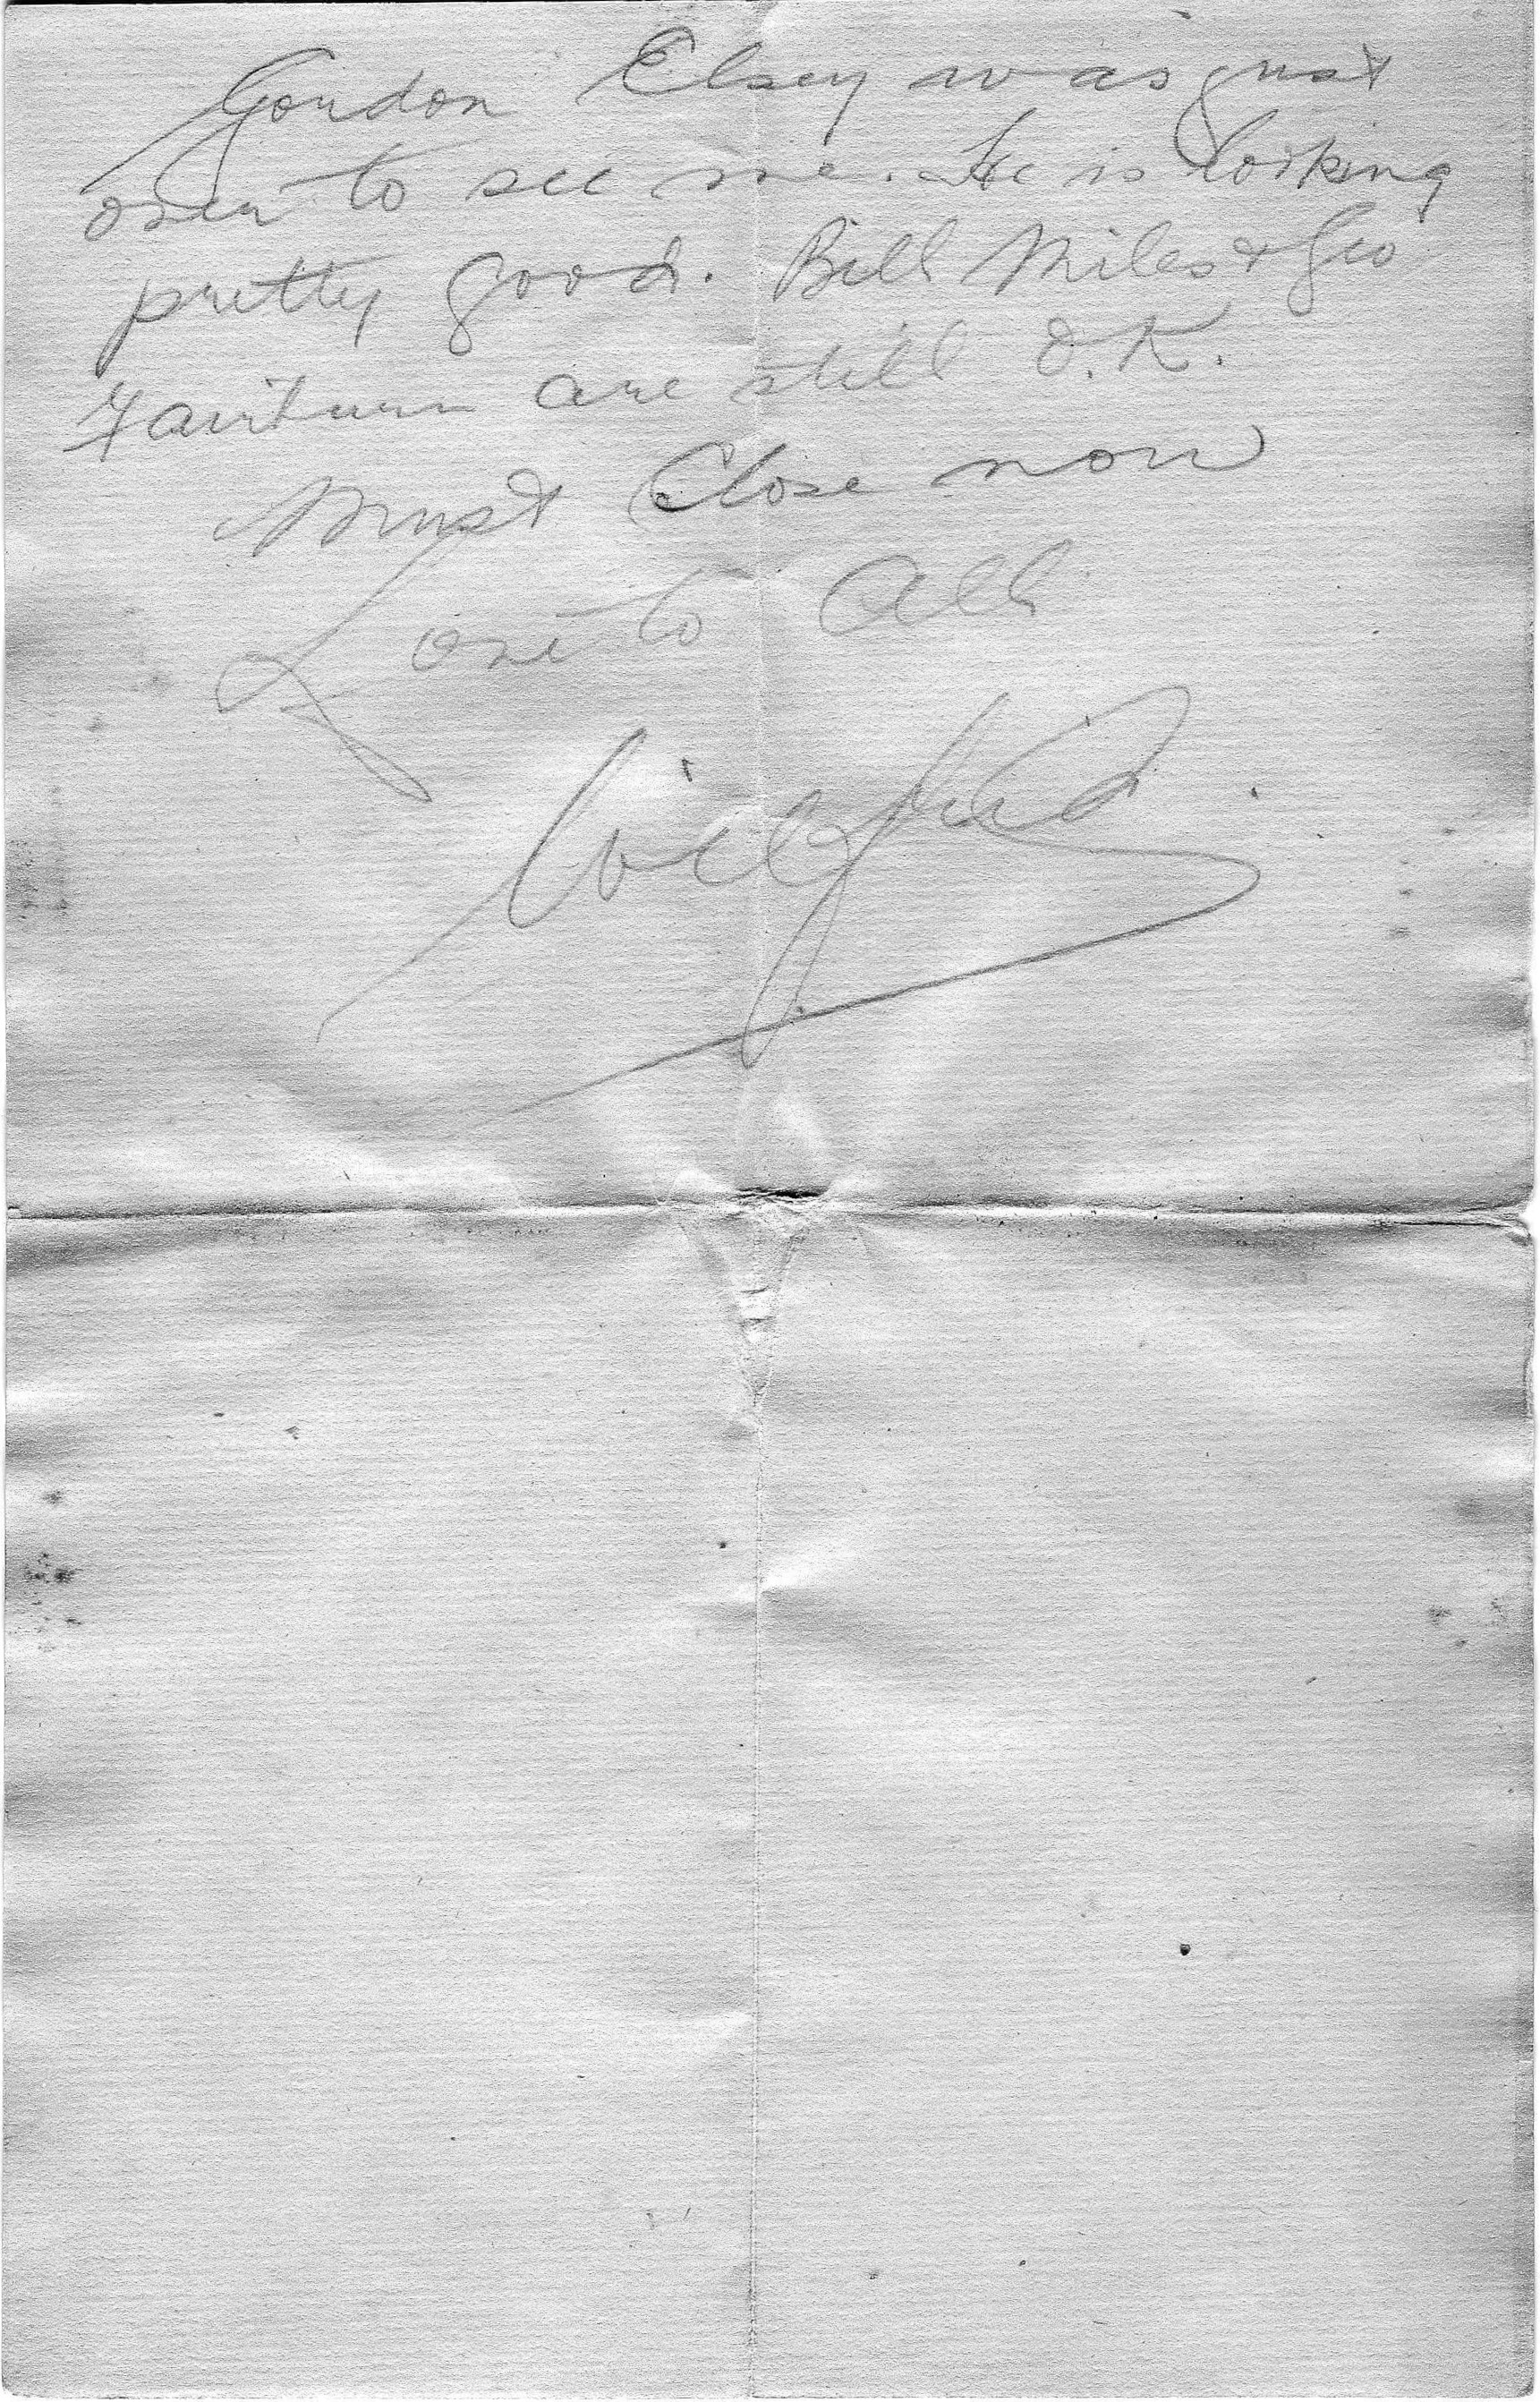 Gordon Elsey was just
over to see me. He is looking
pretty good. Bill Miles & Geo
Fairburn are still O.K.
Must Close now
Love to All
Wilfrid